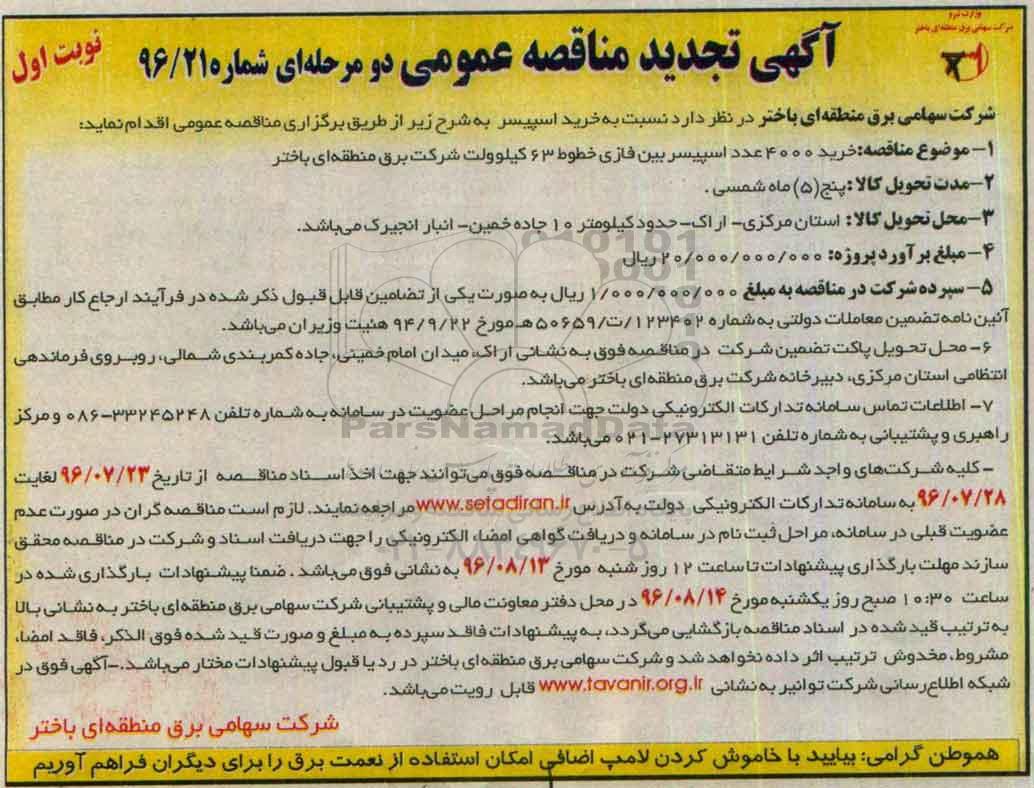 وزارت نیرو
شرکت سهامی برق منطقه‌ای باختر
آگهی تجدید مناقصه عمومی دو مرحله‌ای شماره ۹۶/۲۱
نوبت اول
شرکت سهامی برق منطقه‌ای باختر در نظر دارد نسبت به خرید اسپیسر به شرح زیر از طریق برگزاری مناقصه عمومی اقدام نماید:
۱- موضوع مناقصه: خرید ۴۰۰۰ عدد اسپیسر بین فازی خطوط ۶۳ کیلوولت شرکت برق منطقه‌ای باختر
۲- مدت تحویل کالا: پنج (۵) ماه شمسی .
۳- محل تحویل کالا: استان مرکزی- اراک- حدود کیلومتر ۱۰ جاده خمین- انبار انجیرک می‌باشد.
۴- مبلغ برآورد پروژه: ۲۰/۰۰۰/۰۰۰/۰۰۰ ریال
۵- سپرده شرکت در مناقصه به مبلغ ۱/۰۰۰/۰۰۰/۰۰۰ ریال به صورت یکی از تضامین قابل قبول ذکر شده در فرآیند ارجاع کار مطابق
آئین نامه تضمین معاملات دولتی به شماره ۱۲۳۴۰۲/ت/۵۰۶۵۹ هـ مورخ ۹۴/۹/۲۲ هئیت وزیران می‌باشد.
۶- محل تحویل پاکت تضمین شرکت در مناقصه فوق به نشانی اراک، میدان امام خمینی، جاده کمربندی شمالی، روبروی فرماندهی
انتظامی استان مرکزی، دبیرخانه شرکت برق منطقه‌ای باختر می‌باشد.
۷- اطلاعات تماس سامانه تدارکات الکترونیکی دولت جهت انجام مراحل عضویت در سامانه به شماره تلفن ۳۳۲۴۵۲۴۸-۰۸۶ و مرکز
راهبری و پشتیبانی به شماره تلفن ۲۷۳۱۳۱۳۱-۰۲۱ می‌باشد.
ParsNamadData
- کلیه شرکت‌های واجد شرایط متقاضی شرکت در مناقصه فوق می‌توانند جهت اخذ اسناد مناقصه از تاریخ ۹۶/۰۷/۲۳ لغایت
۹۶/۰۷/۲۸ به سامانه تدارکات الکترونیکی دولت به آدرس www.setadiran.ir مراجعه نمایند. لازم است مناقصه گران در صورت عدم
عضویت قبلی در سامانه، مراحل ثبت نام در سامانه و دریافت گواهی امضاء الکترونیکی را جهت دریافت اسناد و شرکت در مناقصه محقق
سازند مهلت بارگذاری پیشنهادات تا ساعت ۱۲ روز شنبه مورخ ۹۶/۰۸/۱۳ به نشانی فوق می‌باشد . ضمنا پیشنهادات بارگذاری شده در
ساعت ۱۰:۳۰ صبح روز یکشنبه مورخ ۹۶/۰۸/۱۴ در محل دفتر معاونت مالی و پشتیبانی شرکت سهامی برق منطقه‌ای باختر به نشانی بالا
به ترتیب قید شده در اسناد مناقصه بازگشایی می‌گردد، به پیشنهادات فاقد سپرده به مبلغ و صورت قید شده فوق الذکر، فاقد امضا،
مشروط، مخدوش ترتیب اثر داده نخواهد شد و شرکت سهامی برق منطقه‌ای باختر در رد یا قبول پیشنهادات مختار می‌باشد.-آگهی فوق در
شبکه اطلاع‌رسانی شرکت توانیر به نشانی www.tavanir.org.ir قابل رویت می‌باشد.
شرکت سهامی برق منطقه‌ای باختر
هموطن گرامی: بیایید با خاموش کردن لامپ اضافی امکان استفاده از نعمت برق را برای دیگران فراهم آوریم